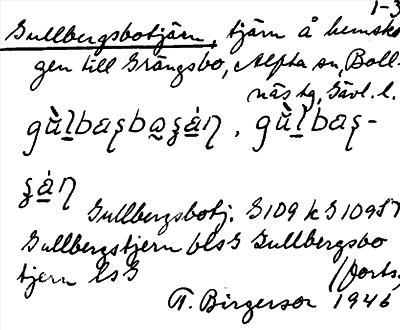 1-3
Gullbergsbotjärn, tjärn å hemsko-
gen till Grängsbo, Alfta sn, Boll-
näs tg, Gävl. l.
Gullbergsbotj. G109 k G109ST
Gullbergstjern blsG Gullbergsbo
tjern lsG (forts.
T. Birgerson 1946